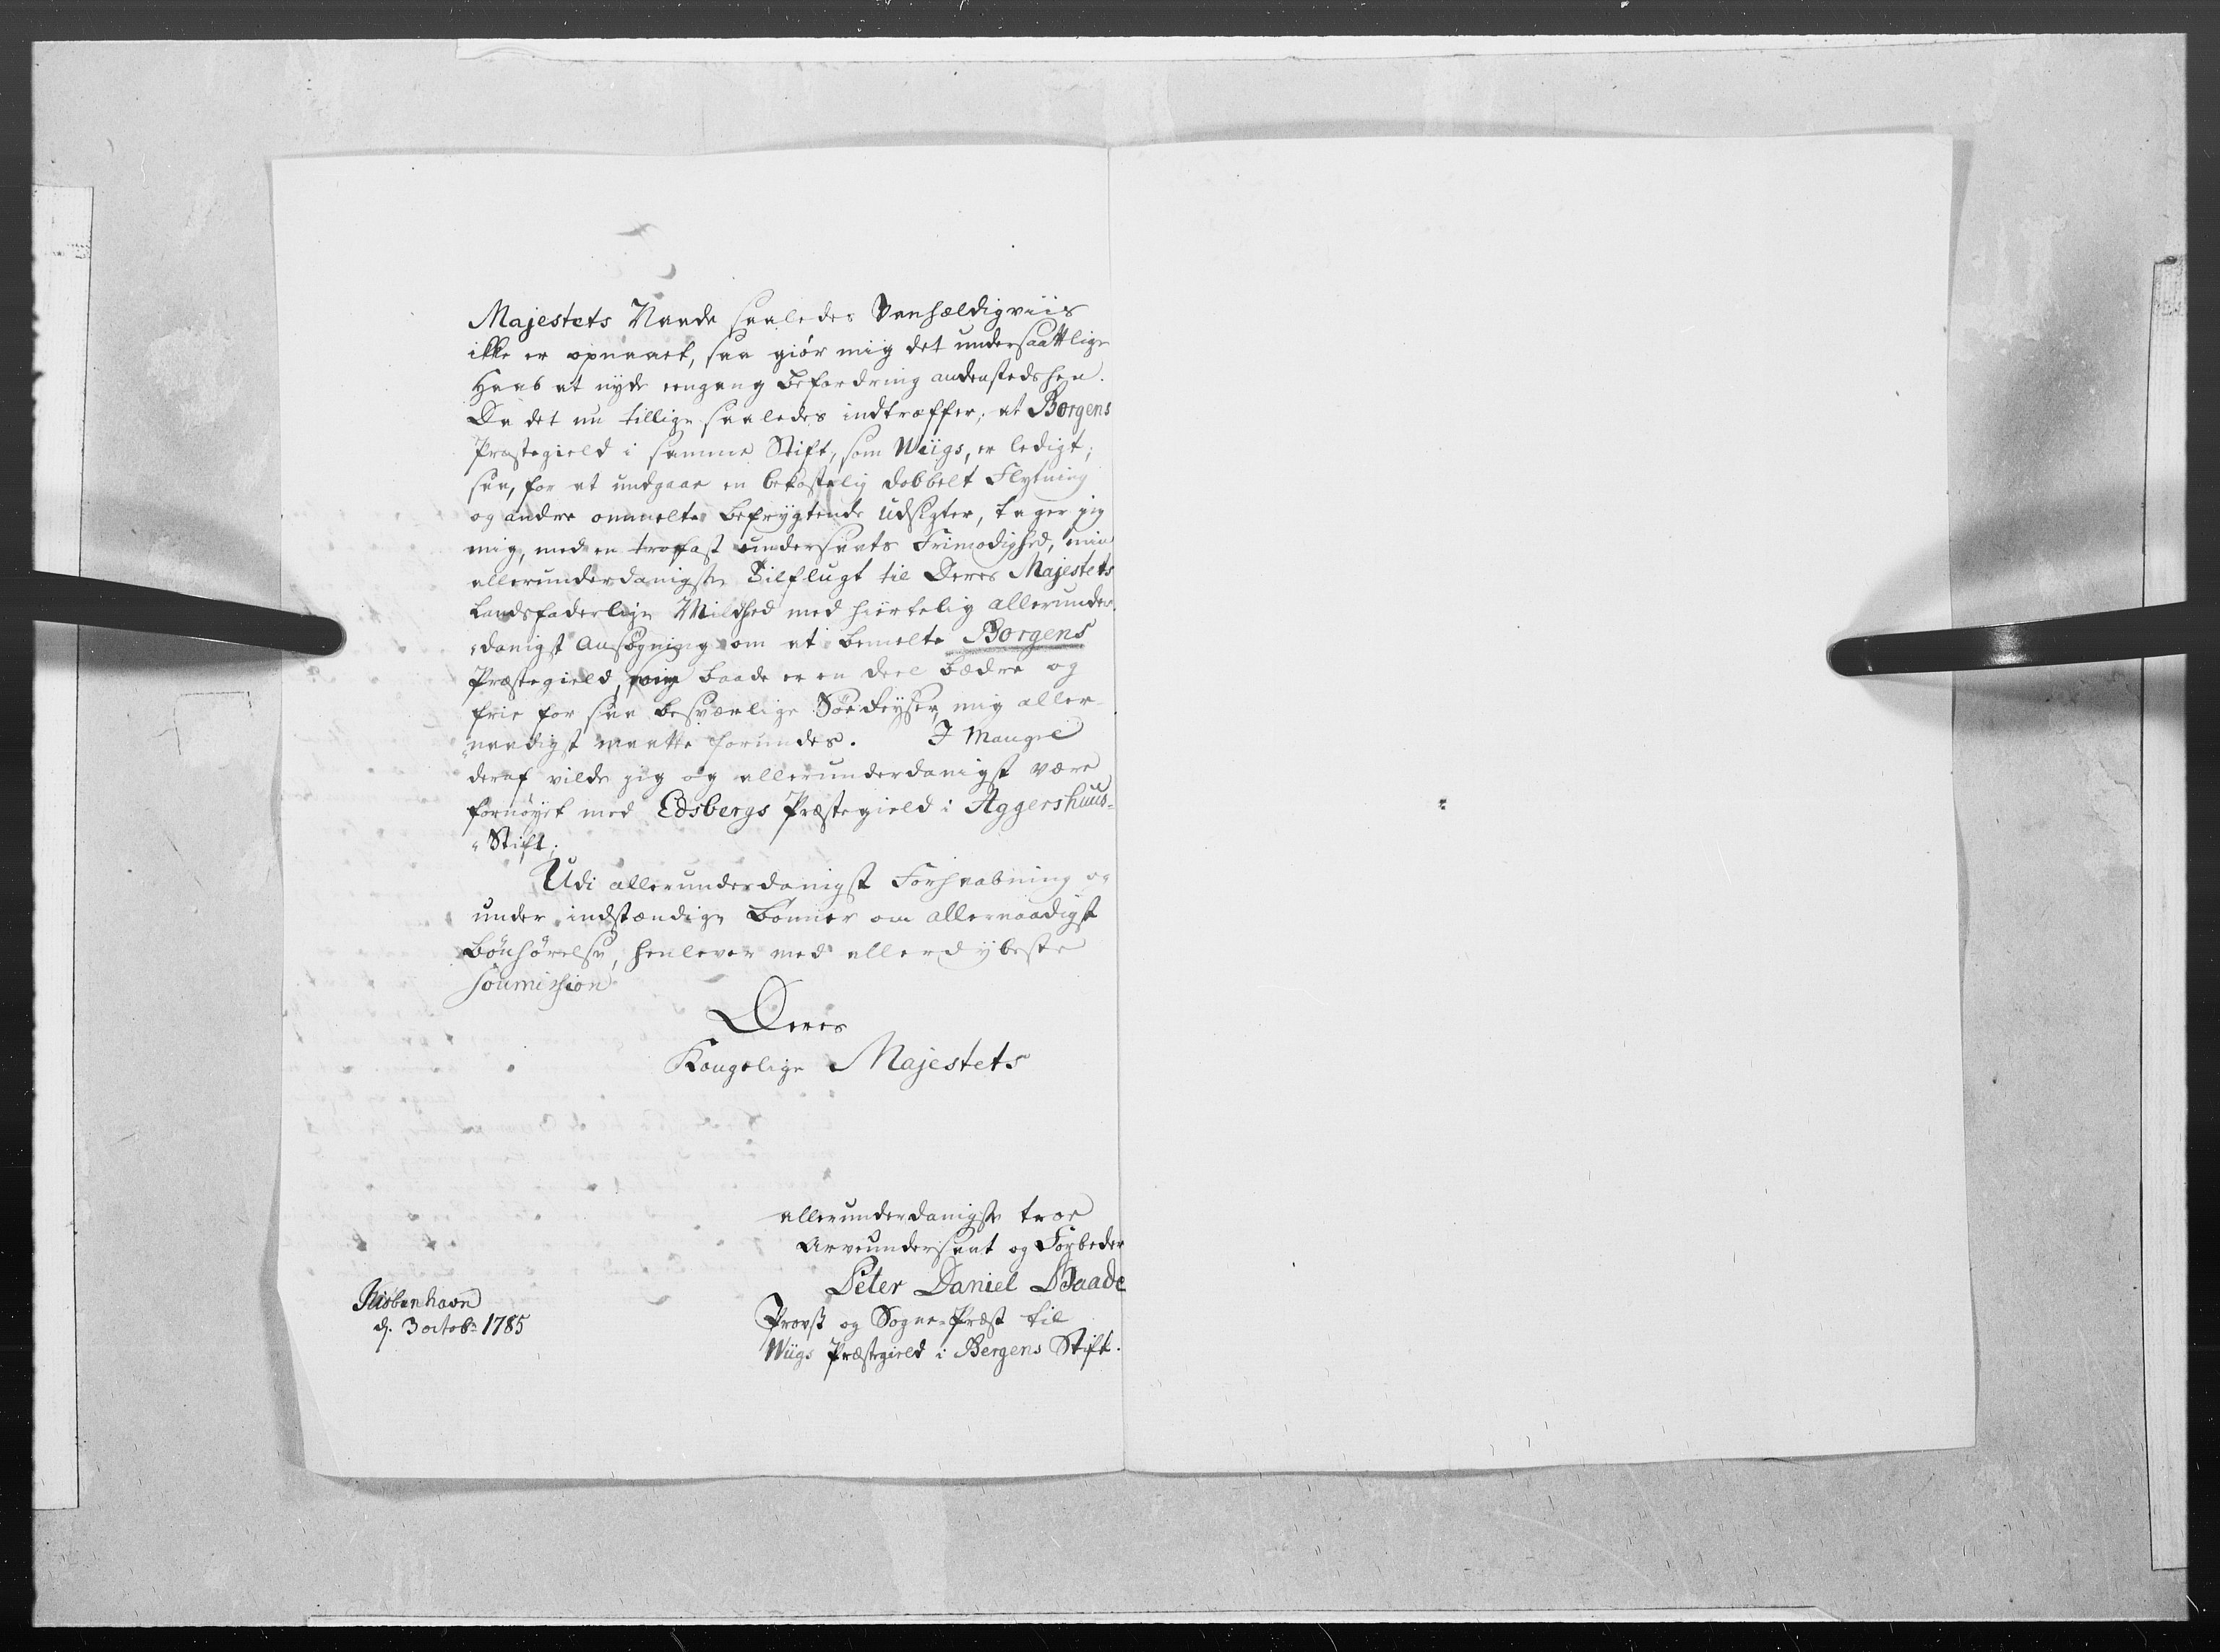 Majestets Naade saaledes Vanhældigviis
ikke er opnaaet, saa giør mig det undersaatlige
Haab at nyde eengang Befordring andenstedshen.
Da det nu tillige saaledes indtræffer, at Borgens
Præstegield i samme Stift, som Wiigs, er ledigt;
saa, for at undgaae en bekostelig dobbelt Flytning
og andre ommelte befrygtende Udsigter, tager jeg
mig, med en trofast undersaats Frimodighed, min
allerunderdanigste Tilflugt til Deres Majestets
Landsfaderlige Mildhed med hiertelig allerunder-
„danigst Ansøgning om at bemelte Borgens
Præstegield, som baade er en deel bædre og
frie for saa besværlige Søe Reyser, mig aller-
„naadigst maatte forundes. I Mangel
deraf vilde jeg og allerunderdanigst være
fornøyet med Edsbergs Præstegield i Aggershuus-
„Stift.
Udi allerunderdanigst Forhaabning og
under indstændige Bønner om allernaadigst
Bønhørelse, henlever med allerdybeste
soumission
Deres
Kongelige Majestets
allerunderdanigste troe
Arveundersaat og Forbeder
Peter Daniel Baade
Provst og Sogne-Præst til
Wiigs Præstegield i Bergens Stift.
Kiøbenhavn
d. 3 octobr 1785